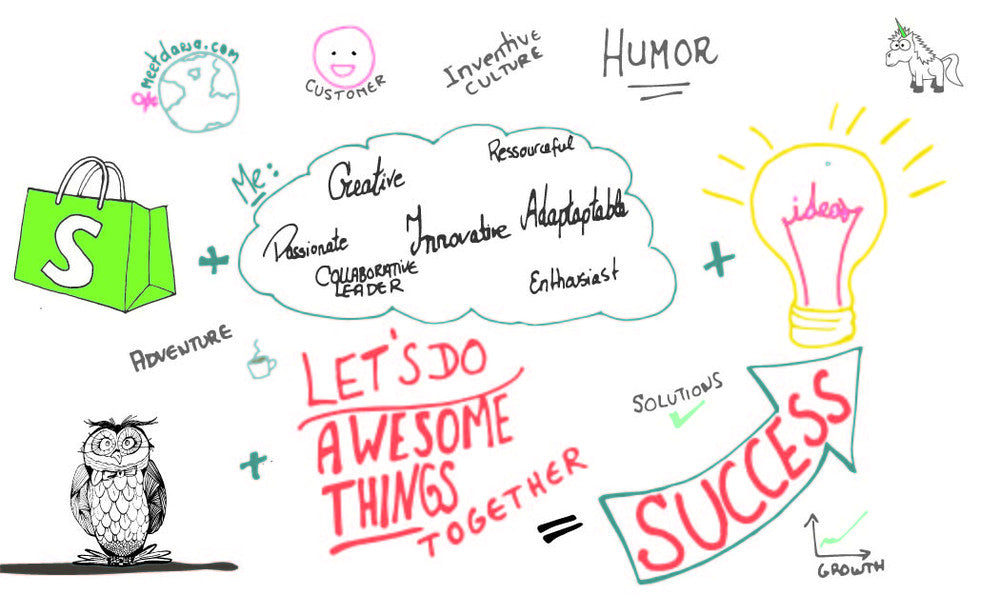 meetdaria.com
CUSTOMER
Inventive
CULTURE
HUMOR
S
Me:
Creative
Ressourceful
Passionate
Innovative
Adaptaptable
COLLABORATIVE
LEADER
Enthusiast
+
+
ideas
ADVENTURE
LET'S DO
AWESOME
THINGS
TOGETHER
+
=
SOLUTIONS
SUCCESS
GROWTH